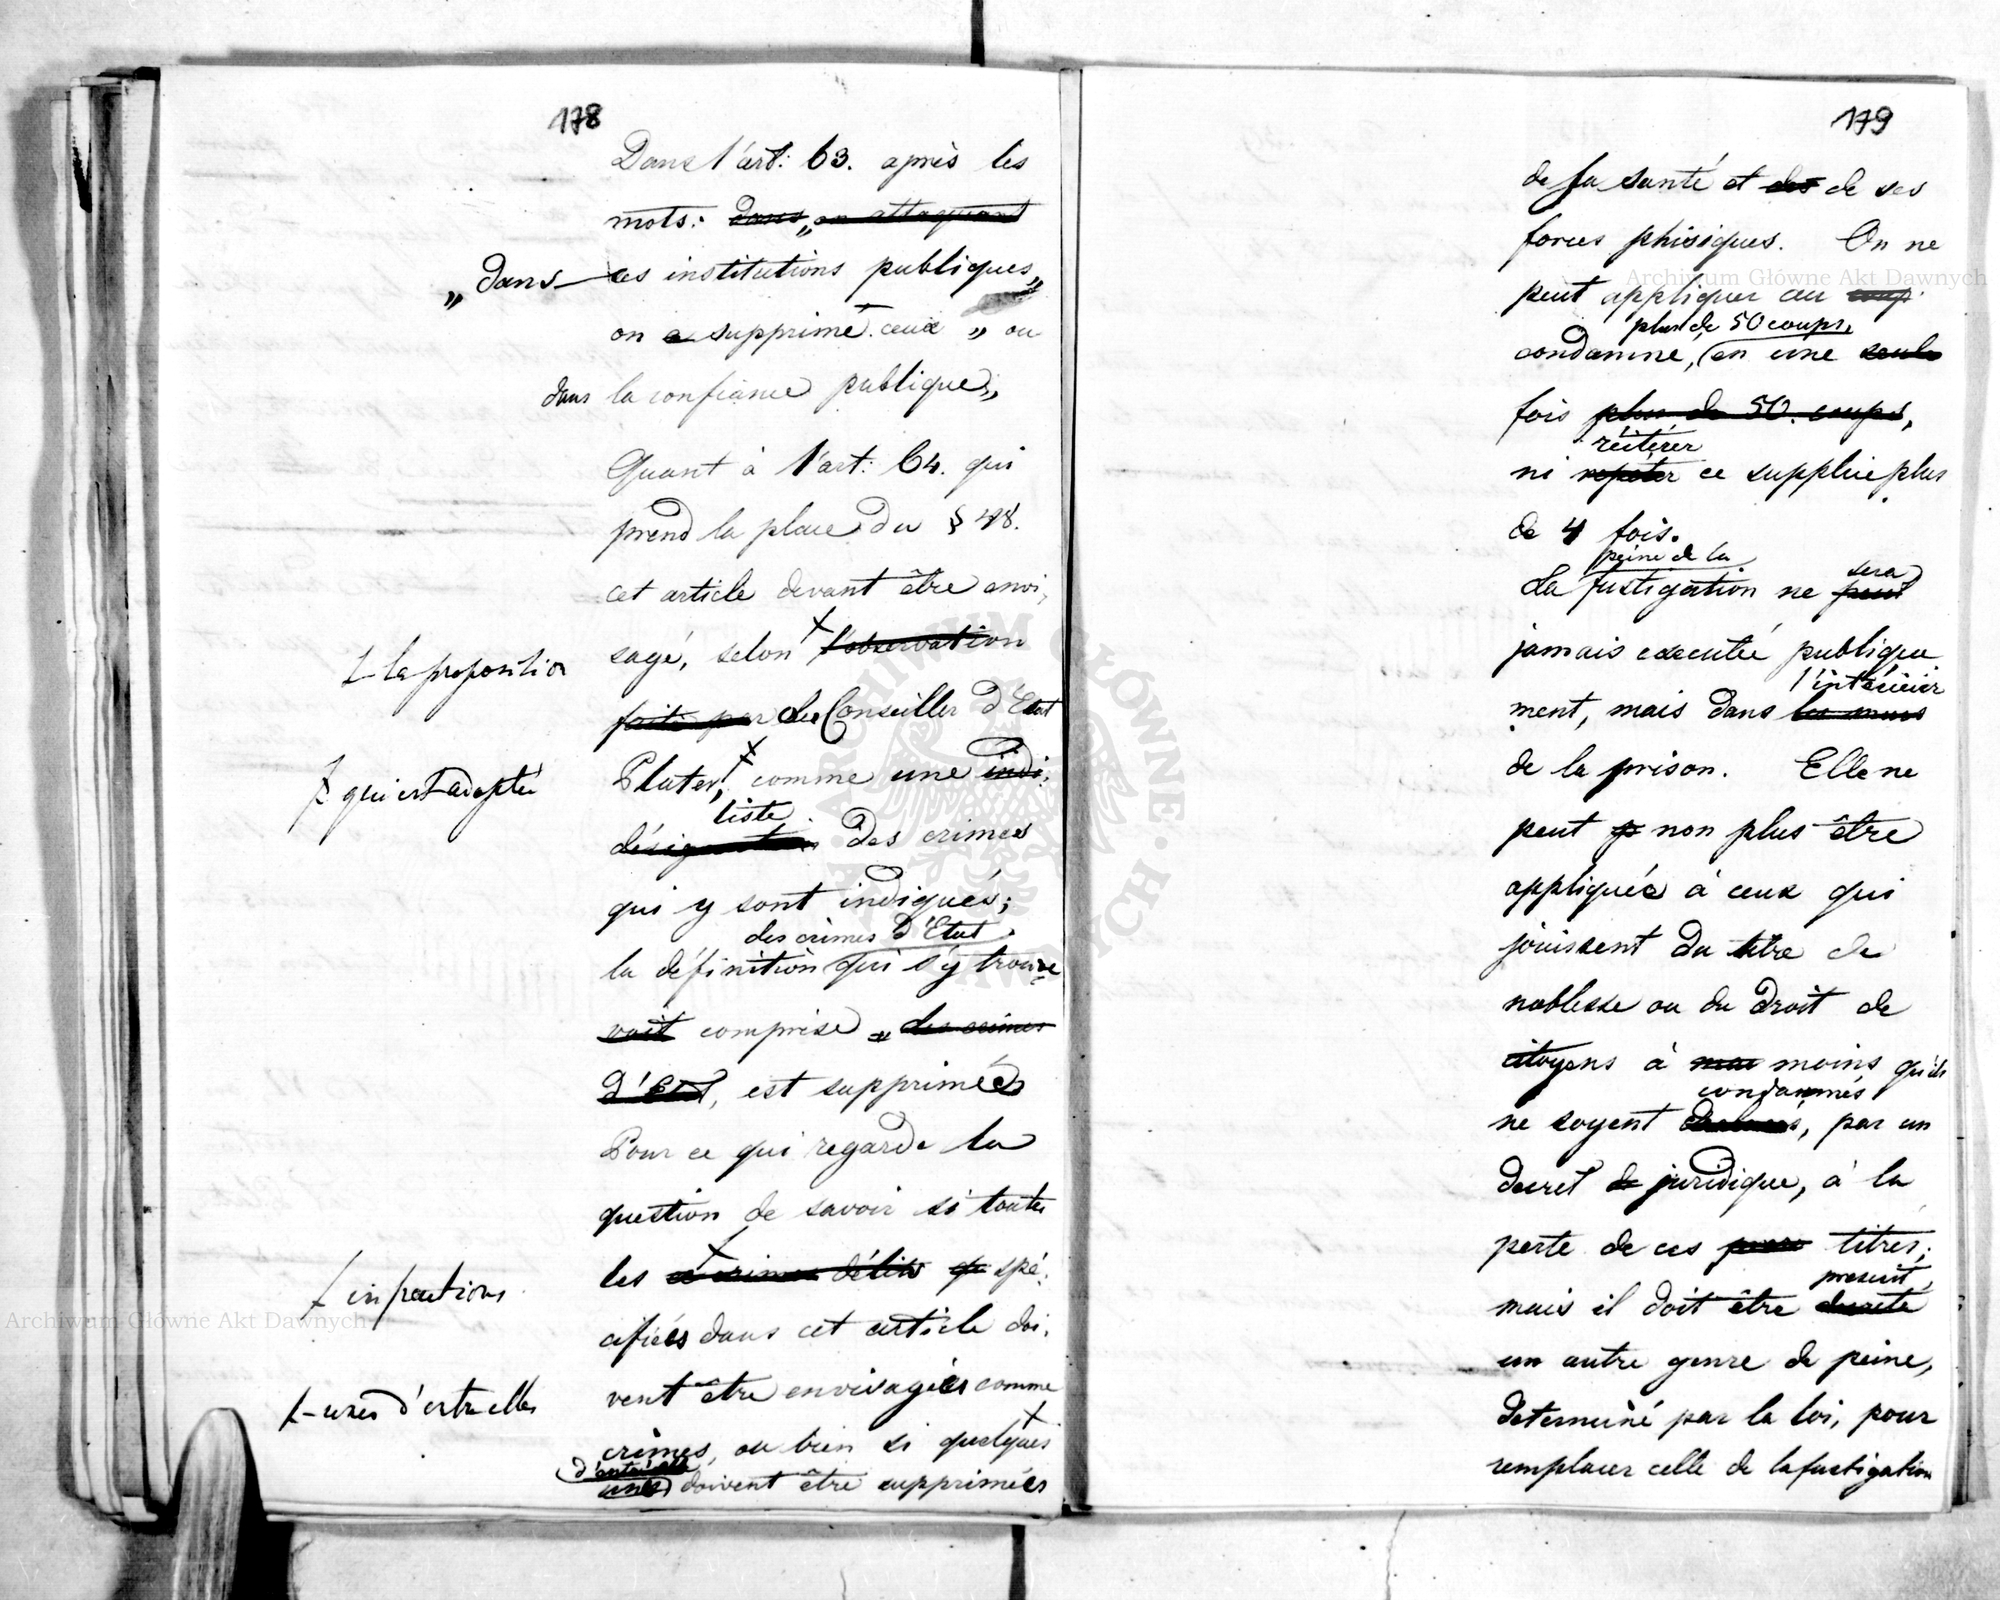 178
Dans l'art: 63. après les
mots: dans „en attaquant
„ dans ces institutions publiques„
on a supprimé ceux „ ou
dans la confiance publique„
Quant à l'art: 64. qui
prend la place du § 48.
cet article devant être envi,
sagé, selon l'observation
⁒ la proposition
faite par du Conseiller d'Etat
Plater, comme une indi,
qui est adoptée
liste
désignation des crimes
qui y sont indiqués;
des crimes d'Etat
la définition qui s'y trouve
vait comprise „ des crimes
d'Etat, est supprimée
Pour ce qui regarde la
question de savoir si toutes
les crimes délits qu spé,
infractions
cifiées dans cet article doi,
vent être envisagées comme
unes d'entr'elles
crimes, ou bien si quelques
d'entr'elles
unes doivent être supprimées
179
de sa santé et des de ses
forces phisiques. On ne
peut appliquer au coup
plus de 50 coups,
condamné, en une seule
fois plus de 50. coups,
réitérer
ni repeter ce supplice plus
de 4 fois.
peine de la
La fustigation ne peut
sera
jamais executée publique
l'intérieur
ment, mais dans les murs
de la prison. Elle ne
peut p non plus être
appliquée à ceux qui
jouissent du titre de
noblesse ou du droit de
citoyens à moins qu'ils
condamnés
ne soyent, par un
decret de juridique, à la
perte de ces titres;
prescrit,
mais il doit être
un autre genre de peine,
determiné par la loi, pour
remplacer celle de la fustigation
Archiwum Główne Akt Dawnych
Archiwum Główne Akt Dawnych
ARCHIWUM GŁÓWNE AKT DAWNYCH